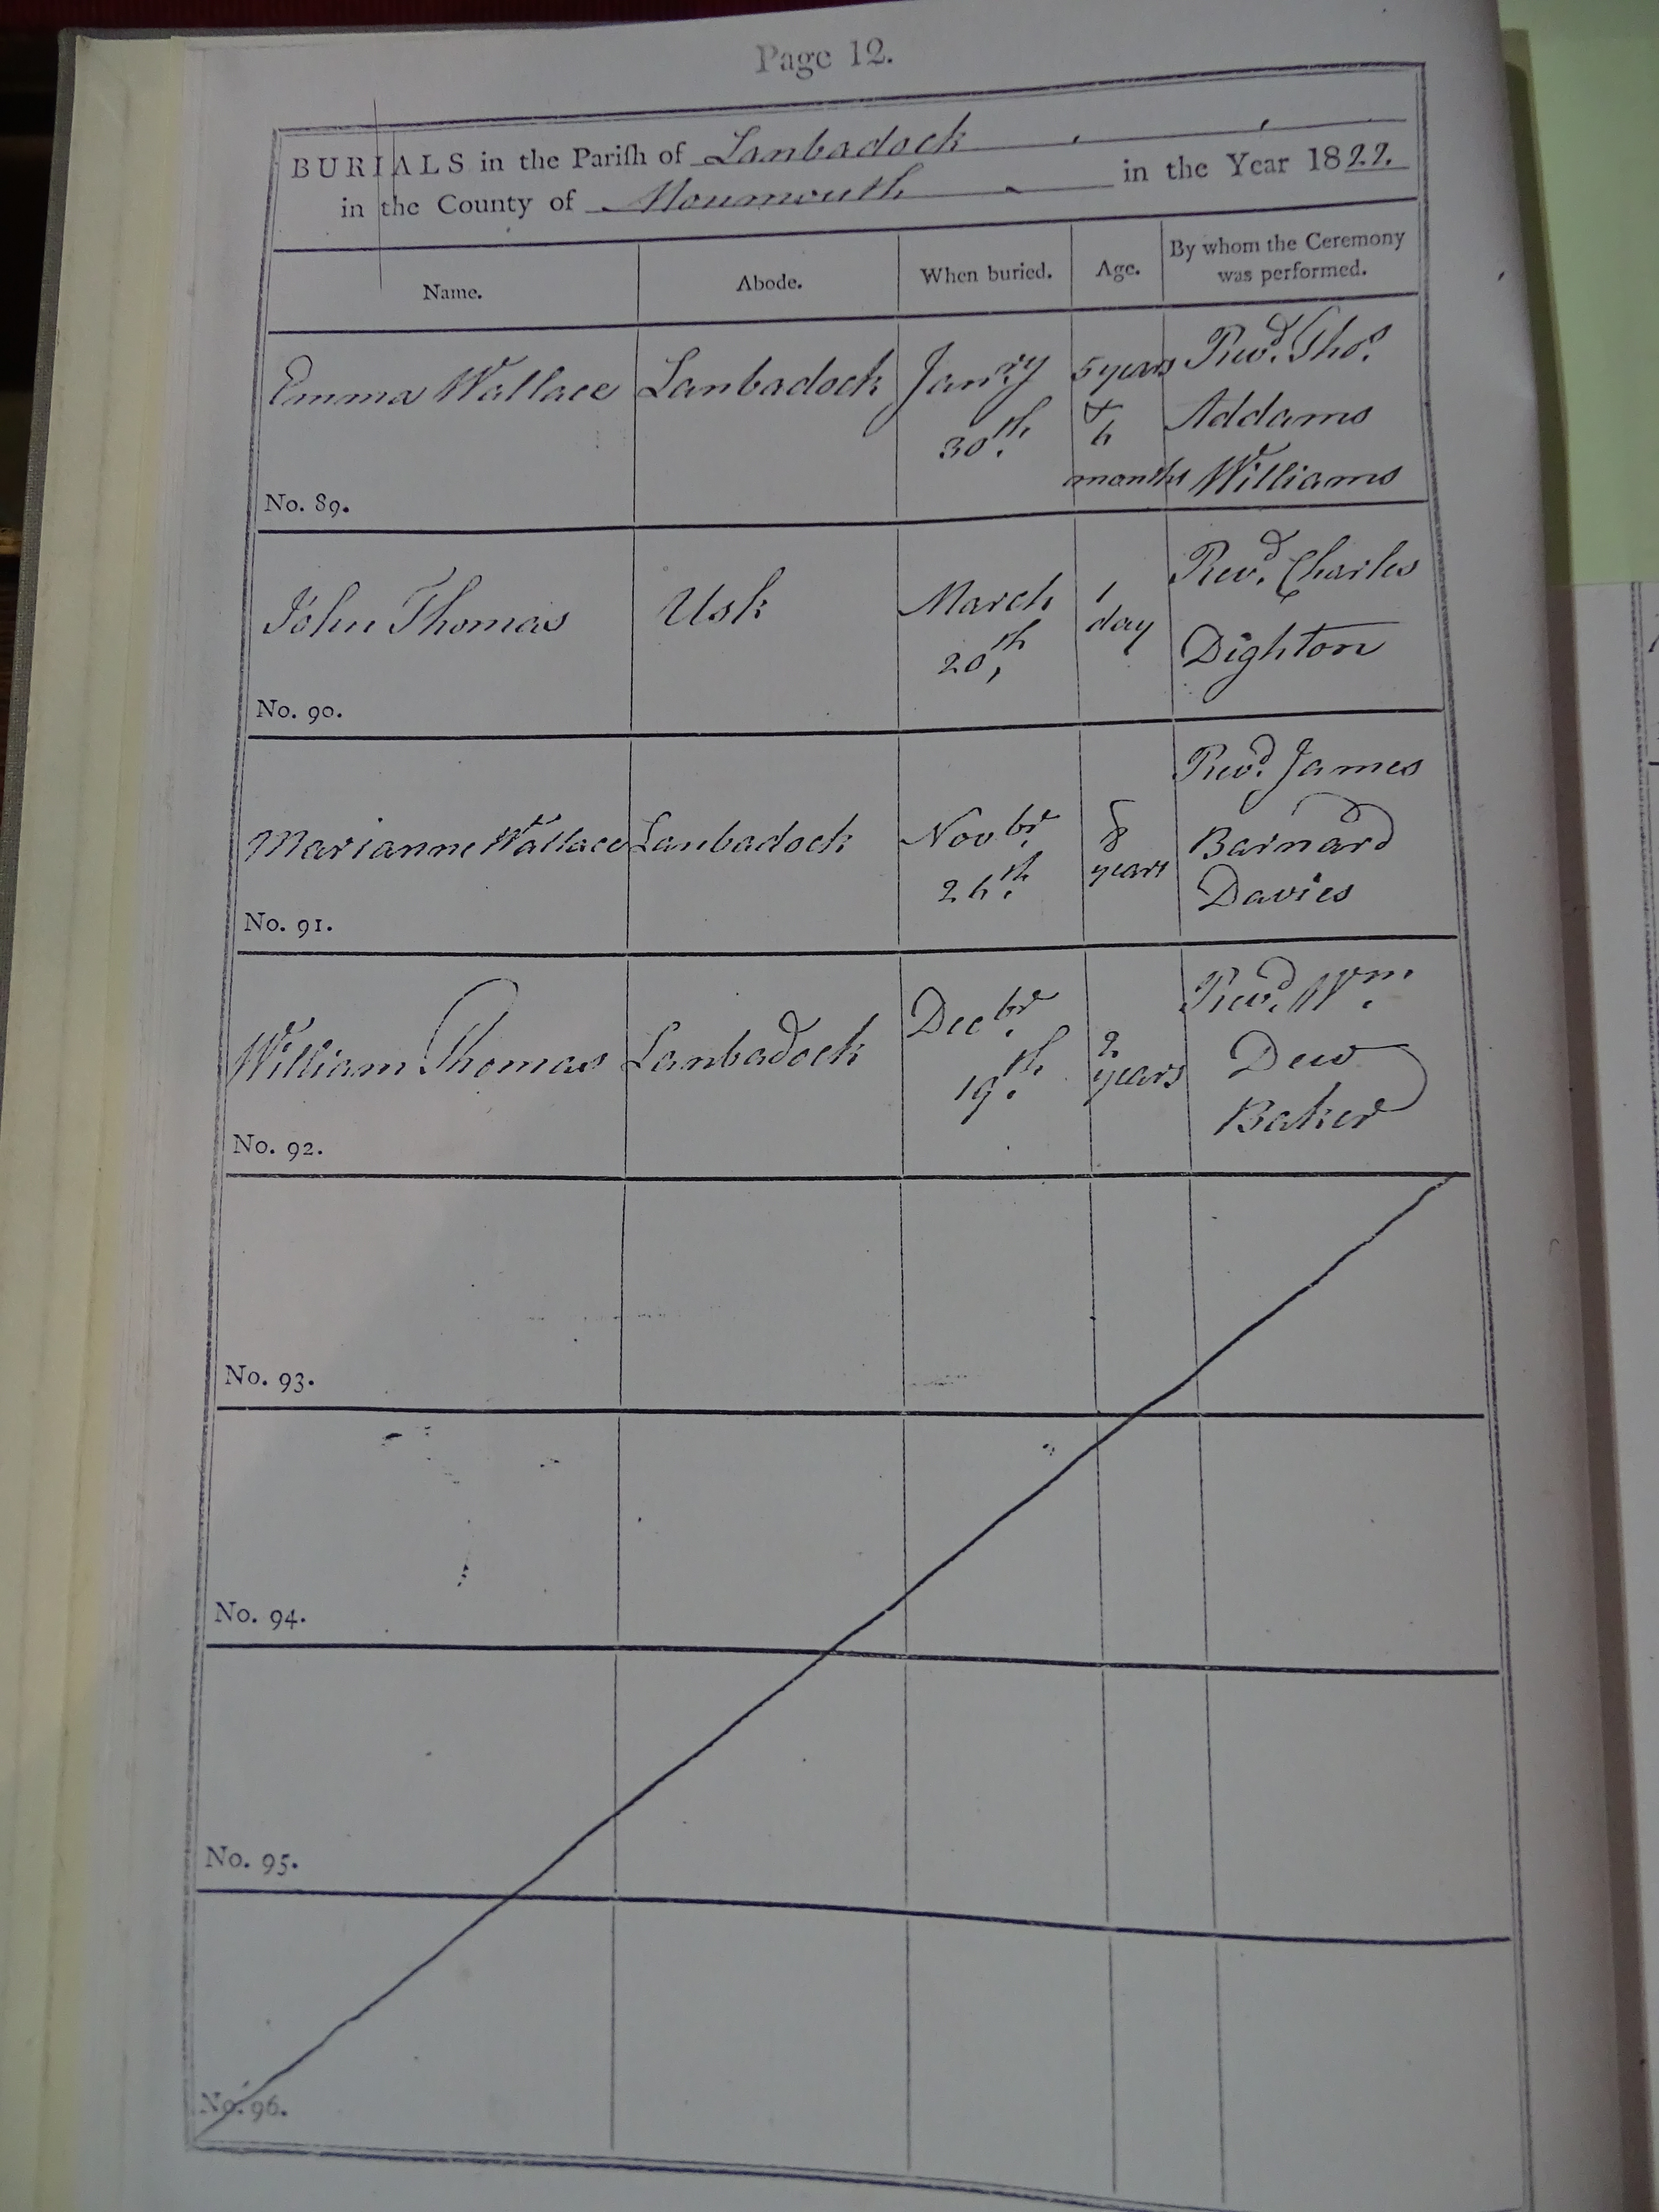 Page 12.
BURIALS in the Pariſh of Lanbadock
in the County of Monmouth in the Year 1822.
Name. Abode. When buried. Age. By whom the Ceremony was performed.
Emma Wallace Lanbadock Janry 30th. 5 years & 6 months Revd. Thos. Addams Williams
No. 89.
John Thomas Usk March 20th, 1 day Revd. Charles Dighton
No. 90.
Marianne Wallace Lanbadock Novbr. 26th. 8 years Revd. James Barnard Davies
No. 91.
William Thomas Lanbadock Decbr. 19th. 2 years Revd. Wm. Dew Baker
No. 92.
No. 93.
No. 94.
No. 95.
No. 96.